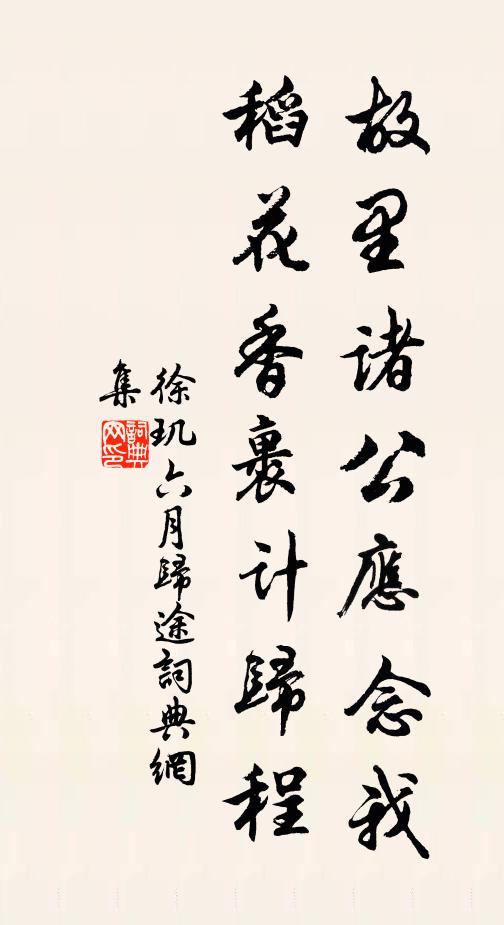 故里諸公應念我
稻花香裏計歸程
徐玑六月歸途詞典網
集
詞典
网印